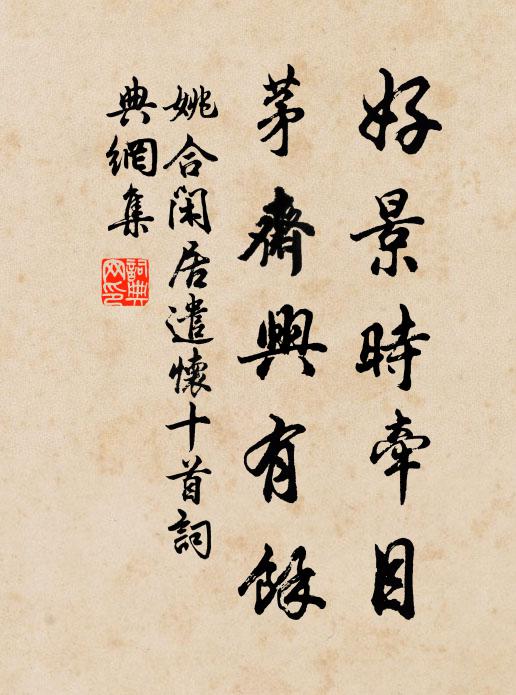 好景時牽目
茅齋興有餘
姚合閑居遣懷十首詞
典網集
詞典
网印